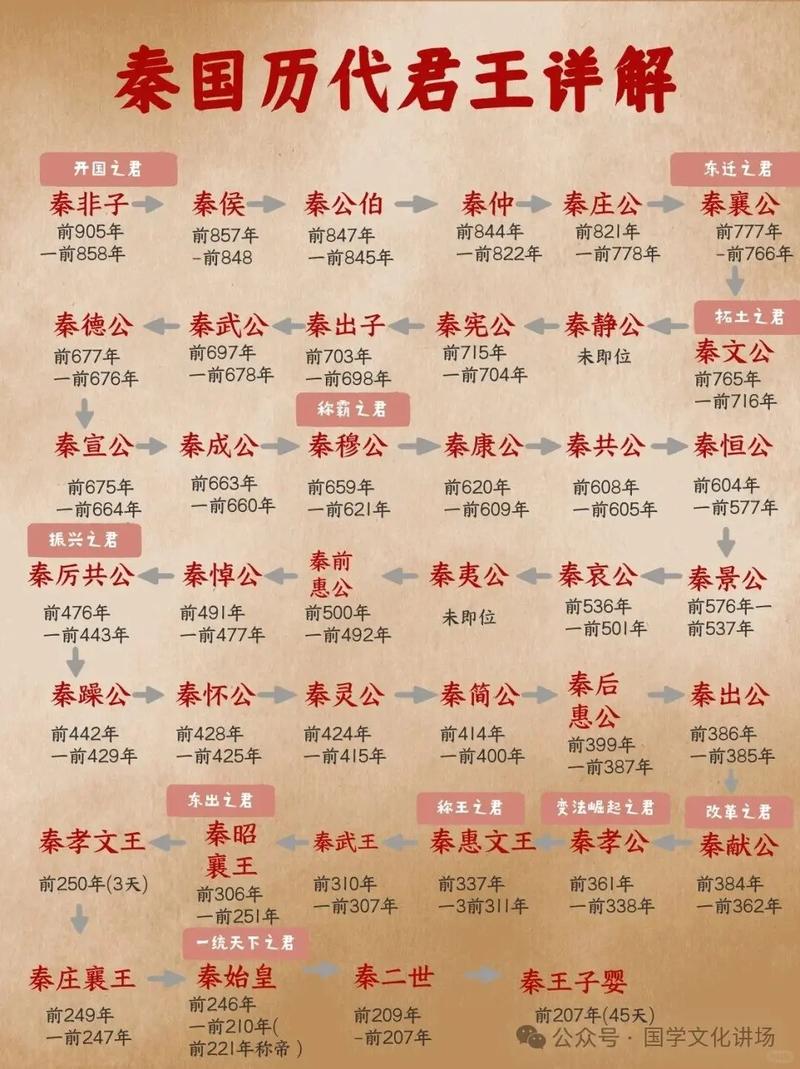 秦国历代君王详解
开国之君
东迁之君
秦非子
秦侯
秦公伯
秦仲
秦庄公
秦襄公
前905年
一前858年
前857年
-前848
前847年
一前845年
前844年
一前822年
前821年
一前778年
前777年
-前766年
拓土之君
秦文公
前765年
一前716年
秦静公
未即位
秦宪公
前715年
一前704年
秦出子
前703年
一前698年
秦武公
前697年
一前678年
秦德公
前677年
一前676年
称霸之君
秦宣公
前675年
一前664年
秦成公
前663年
一前660年
秦穆公
前659年
一前621年
秦康公
前620年
一前609年
秦共公
前608年
一前605年
秦恒公
前604年
一前577年
秦景公
前576年一
前537年
秦哀公
前536年
一前501年
秦夷公
未即位
秦前
惠公
前500年
一前492年
秦悼公
前491年
一前477年
振兴之君
秦厉共公
前476年
一前443年
秦躁公
前442年
一前429年
秦怀公
前428年
一前425年
秦灵公
前424年
一前415年
秦简公
前414年
一前400年
秦后
惠公
前399年
一前387年
秦出公
前386年
一前385年
改革之君
秦献公
前384年
一前362年
变法崛起之君
秦孝公
前361年
一前338年
称王之君
秦惠文王
前337年
一3前311年
秦武王
前310年
一前307年
东出之君
秦昭
襄王
前306年
一前251年
秦孝文王
前250年(3天)
秦庄襄王
前249年
一前247年
一统天下之君
秦始皇
前246年
一前210年(
前221年称帝 )
秦二世
前209年
-前207年
秦王子婴
前207年(45天)
公众号 · 国学文化讲场